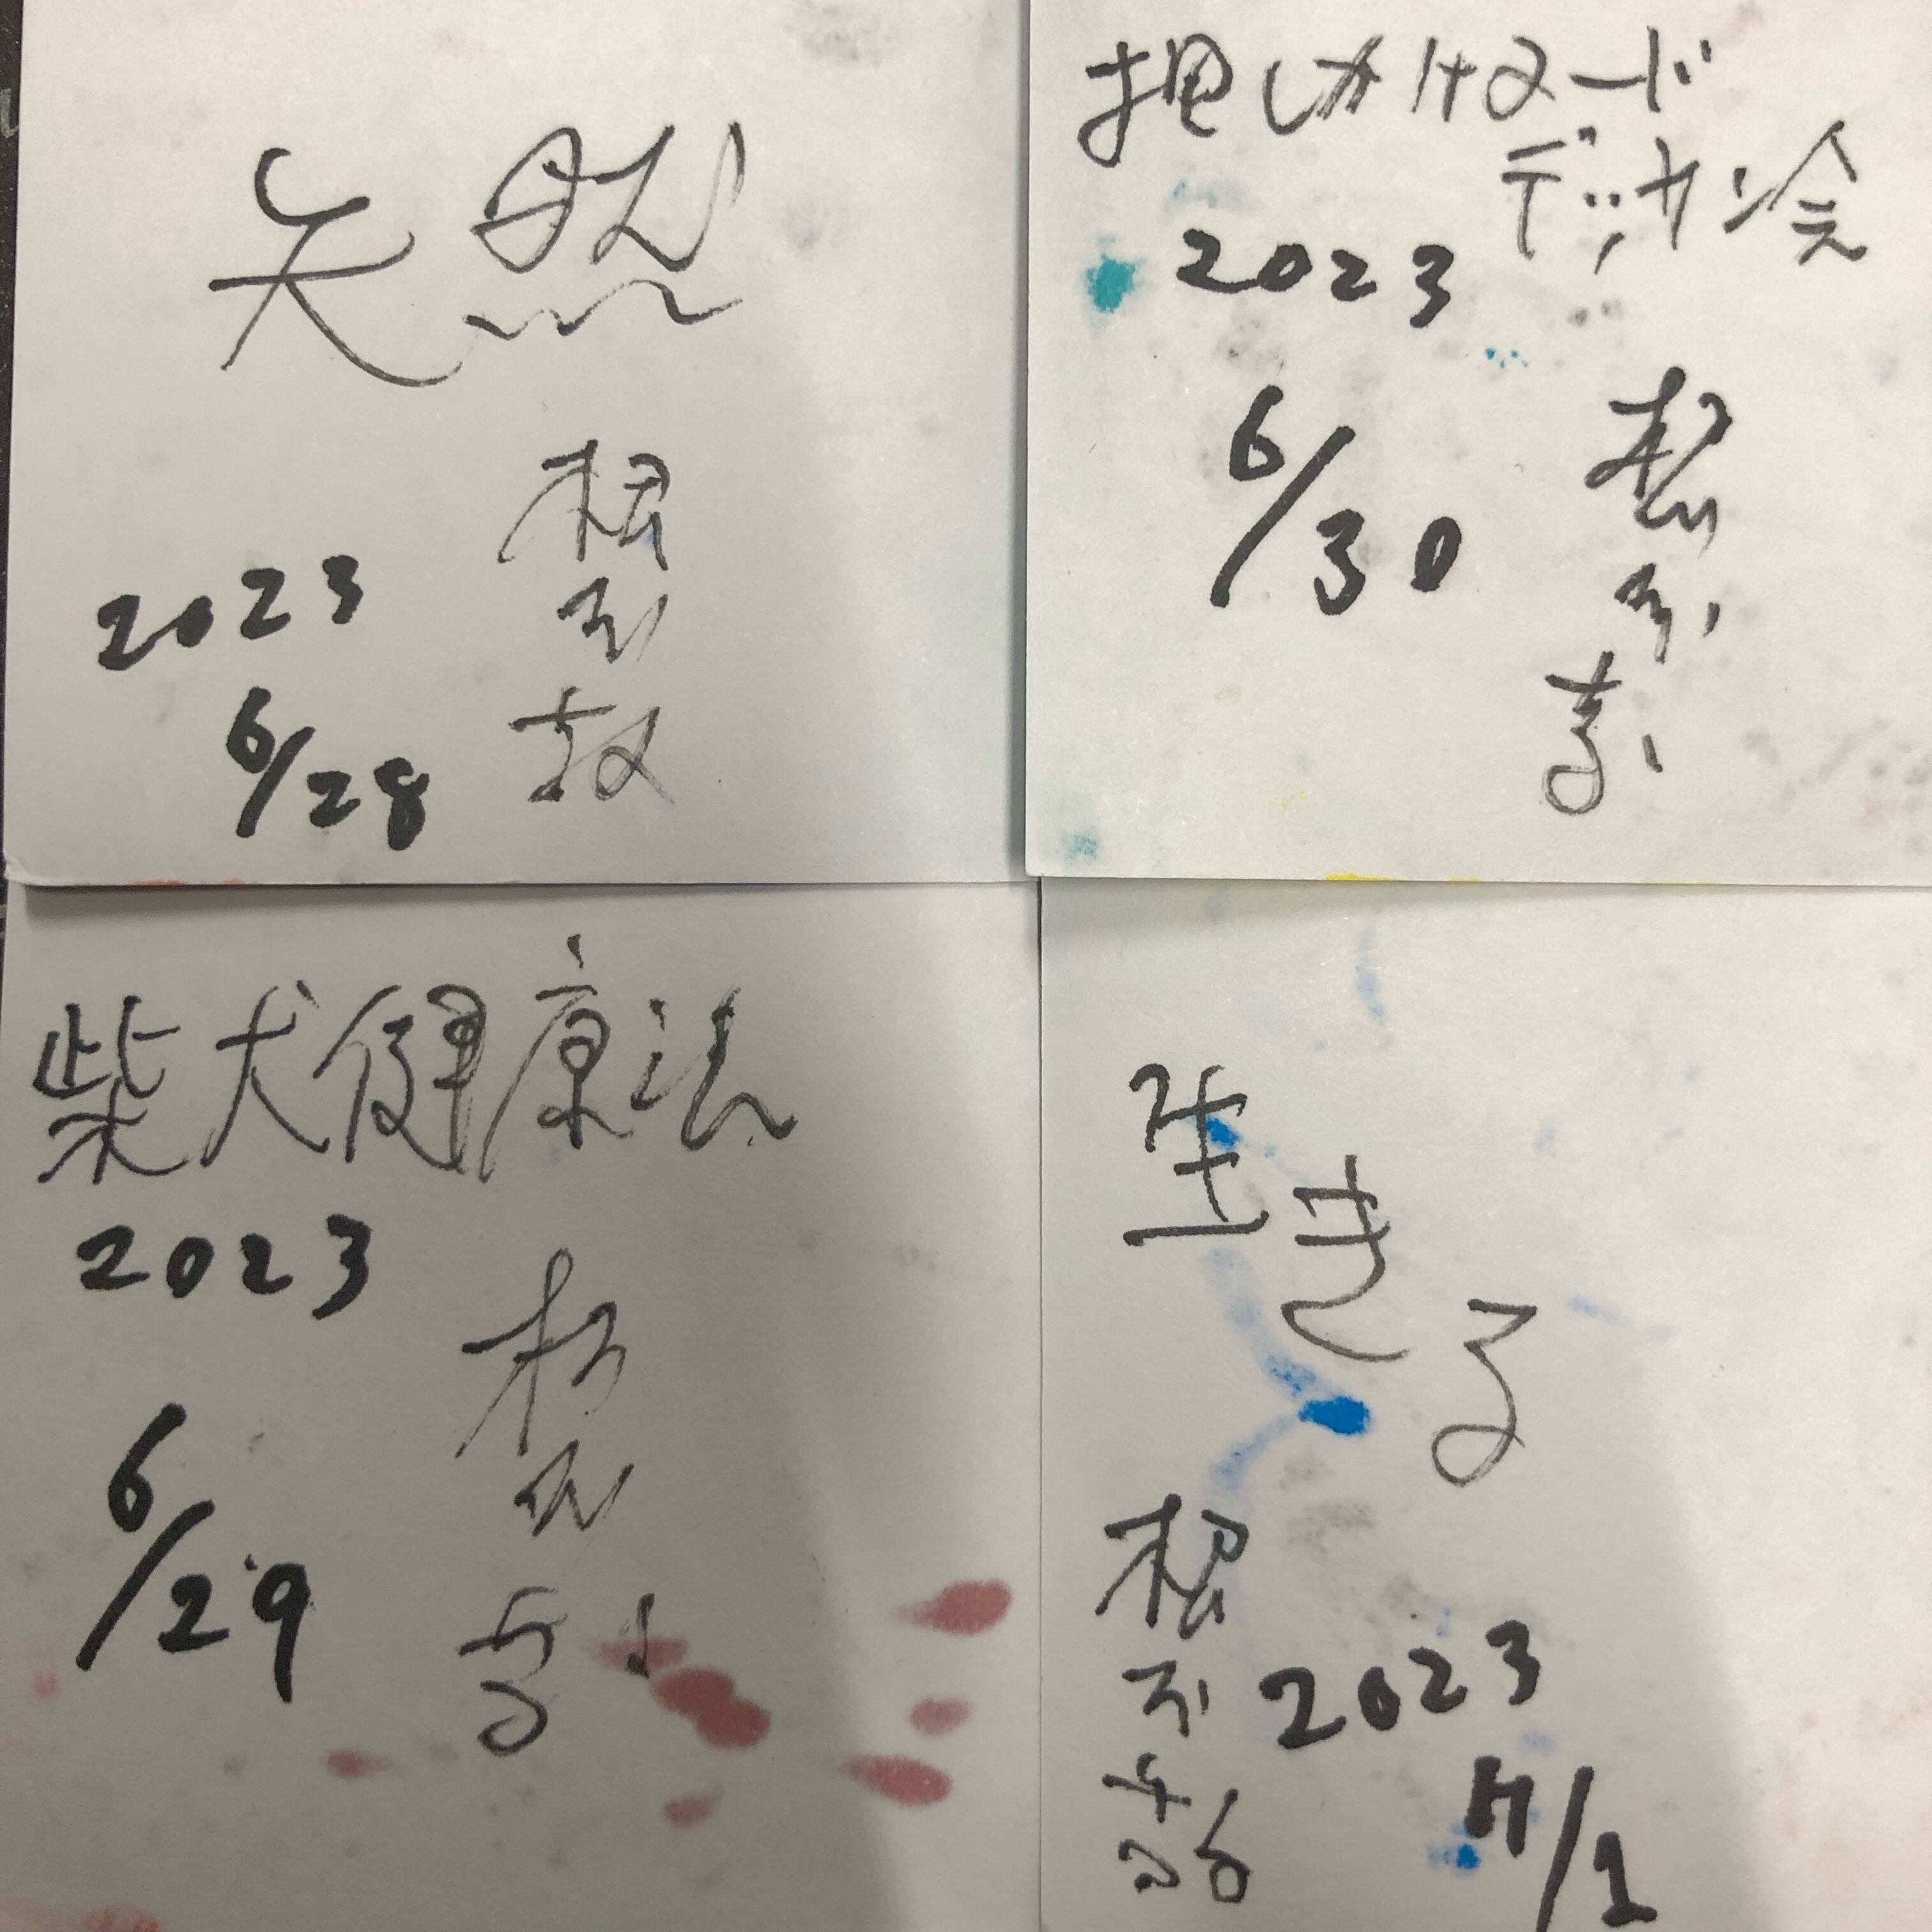 天然
2023
6/28
押しかけヌード
デッサン会
2023
6/30
柴犬健康法
2023
6/29
生きる
2023
7/1